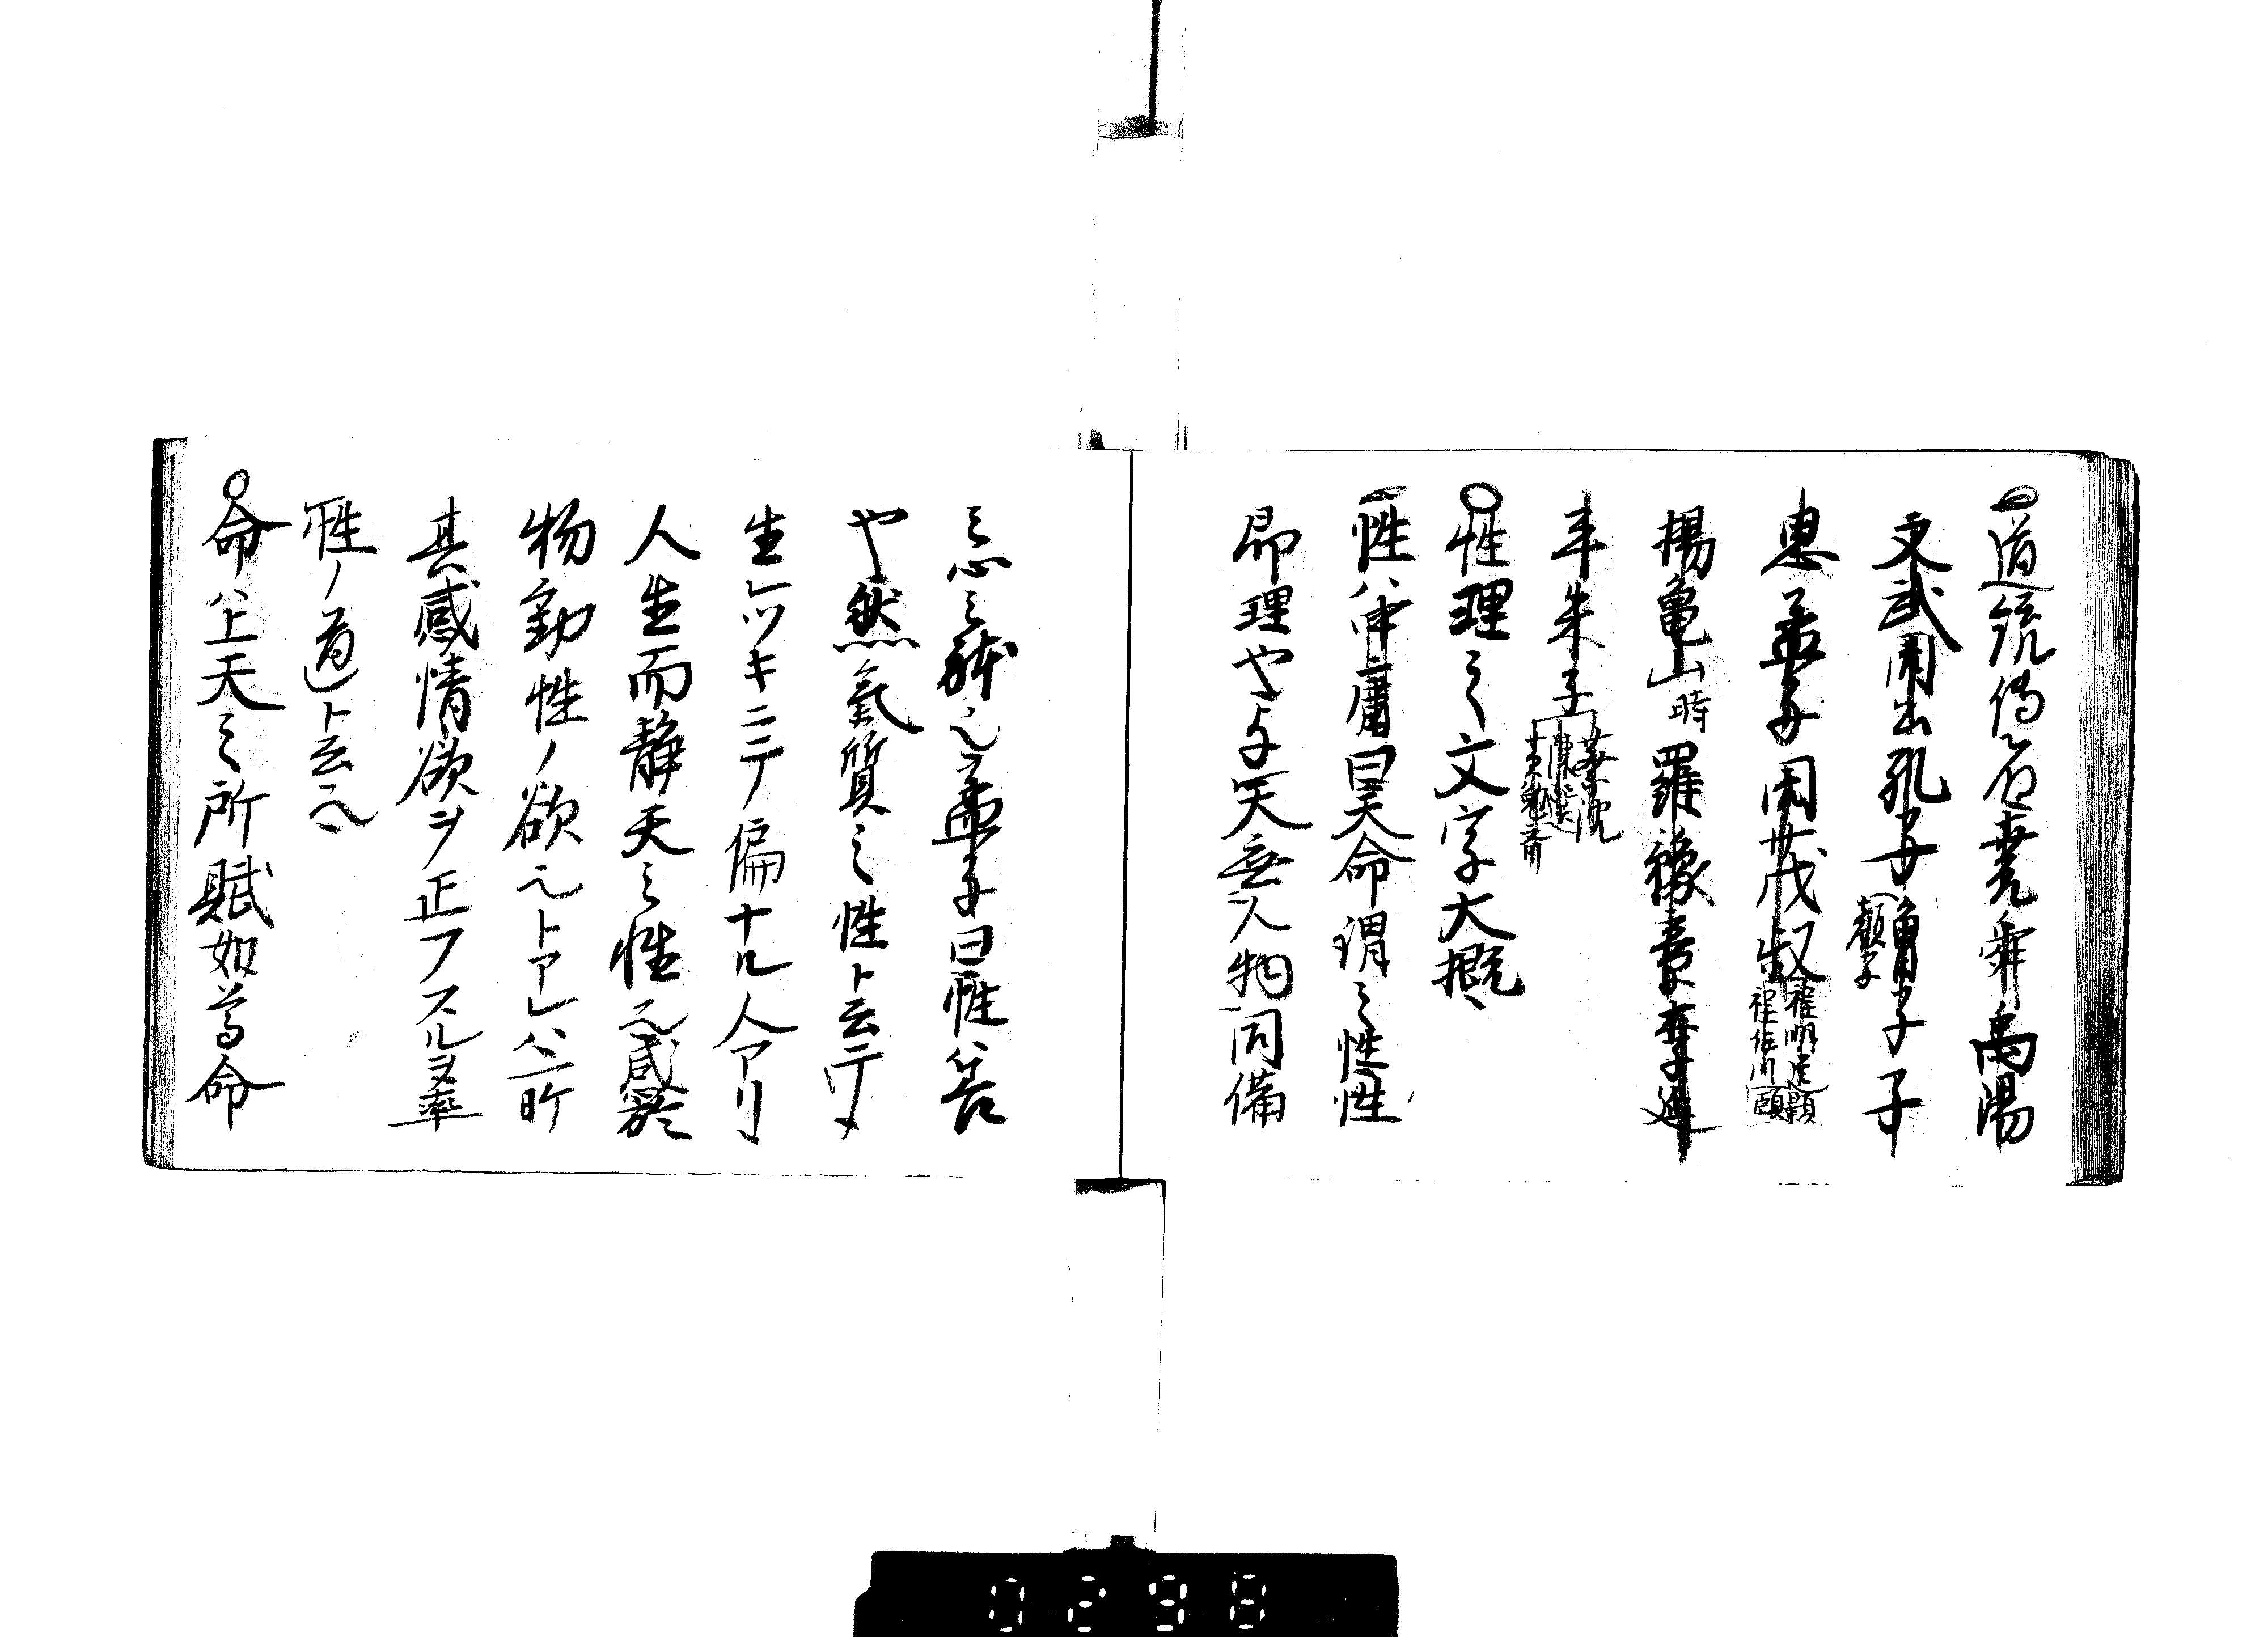 道統傳名堯舜禹湯
文武周公孔子曽子子
顔子
思孟子周茂叔程明道顥
程伊川頤
楊亀山時羅豫章李延
平朱子蔡沈
黄勉斎
性理之文字大概
一性ハ中庸曰天命謂之性性
即理也与天無人物同備
之心之躰也孟子曰性ハ善
也然氣質之性ト云テ
生レツキニテ偏ナル人アリ
人生而静天之性也感於
物動性ノ欲也トアレハ所
其感情欲ヲ正フスルヲ率
性ノ道ト云也
○命ハ上天之所賦如為命
0298